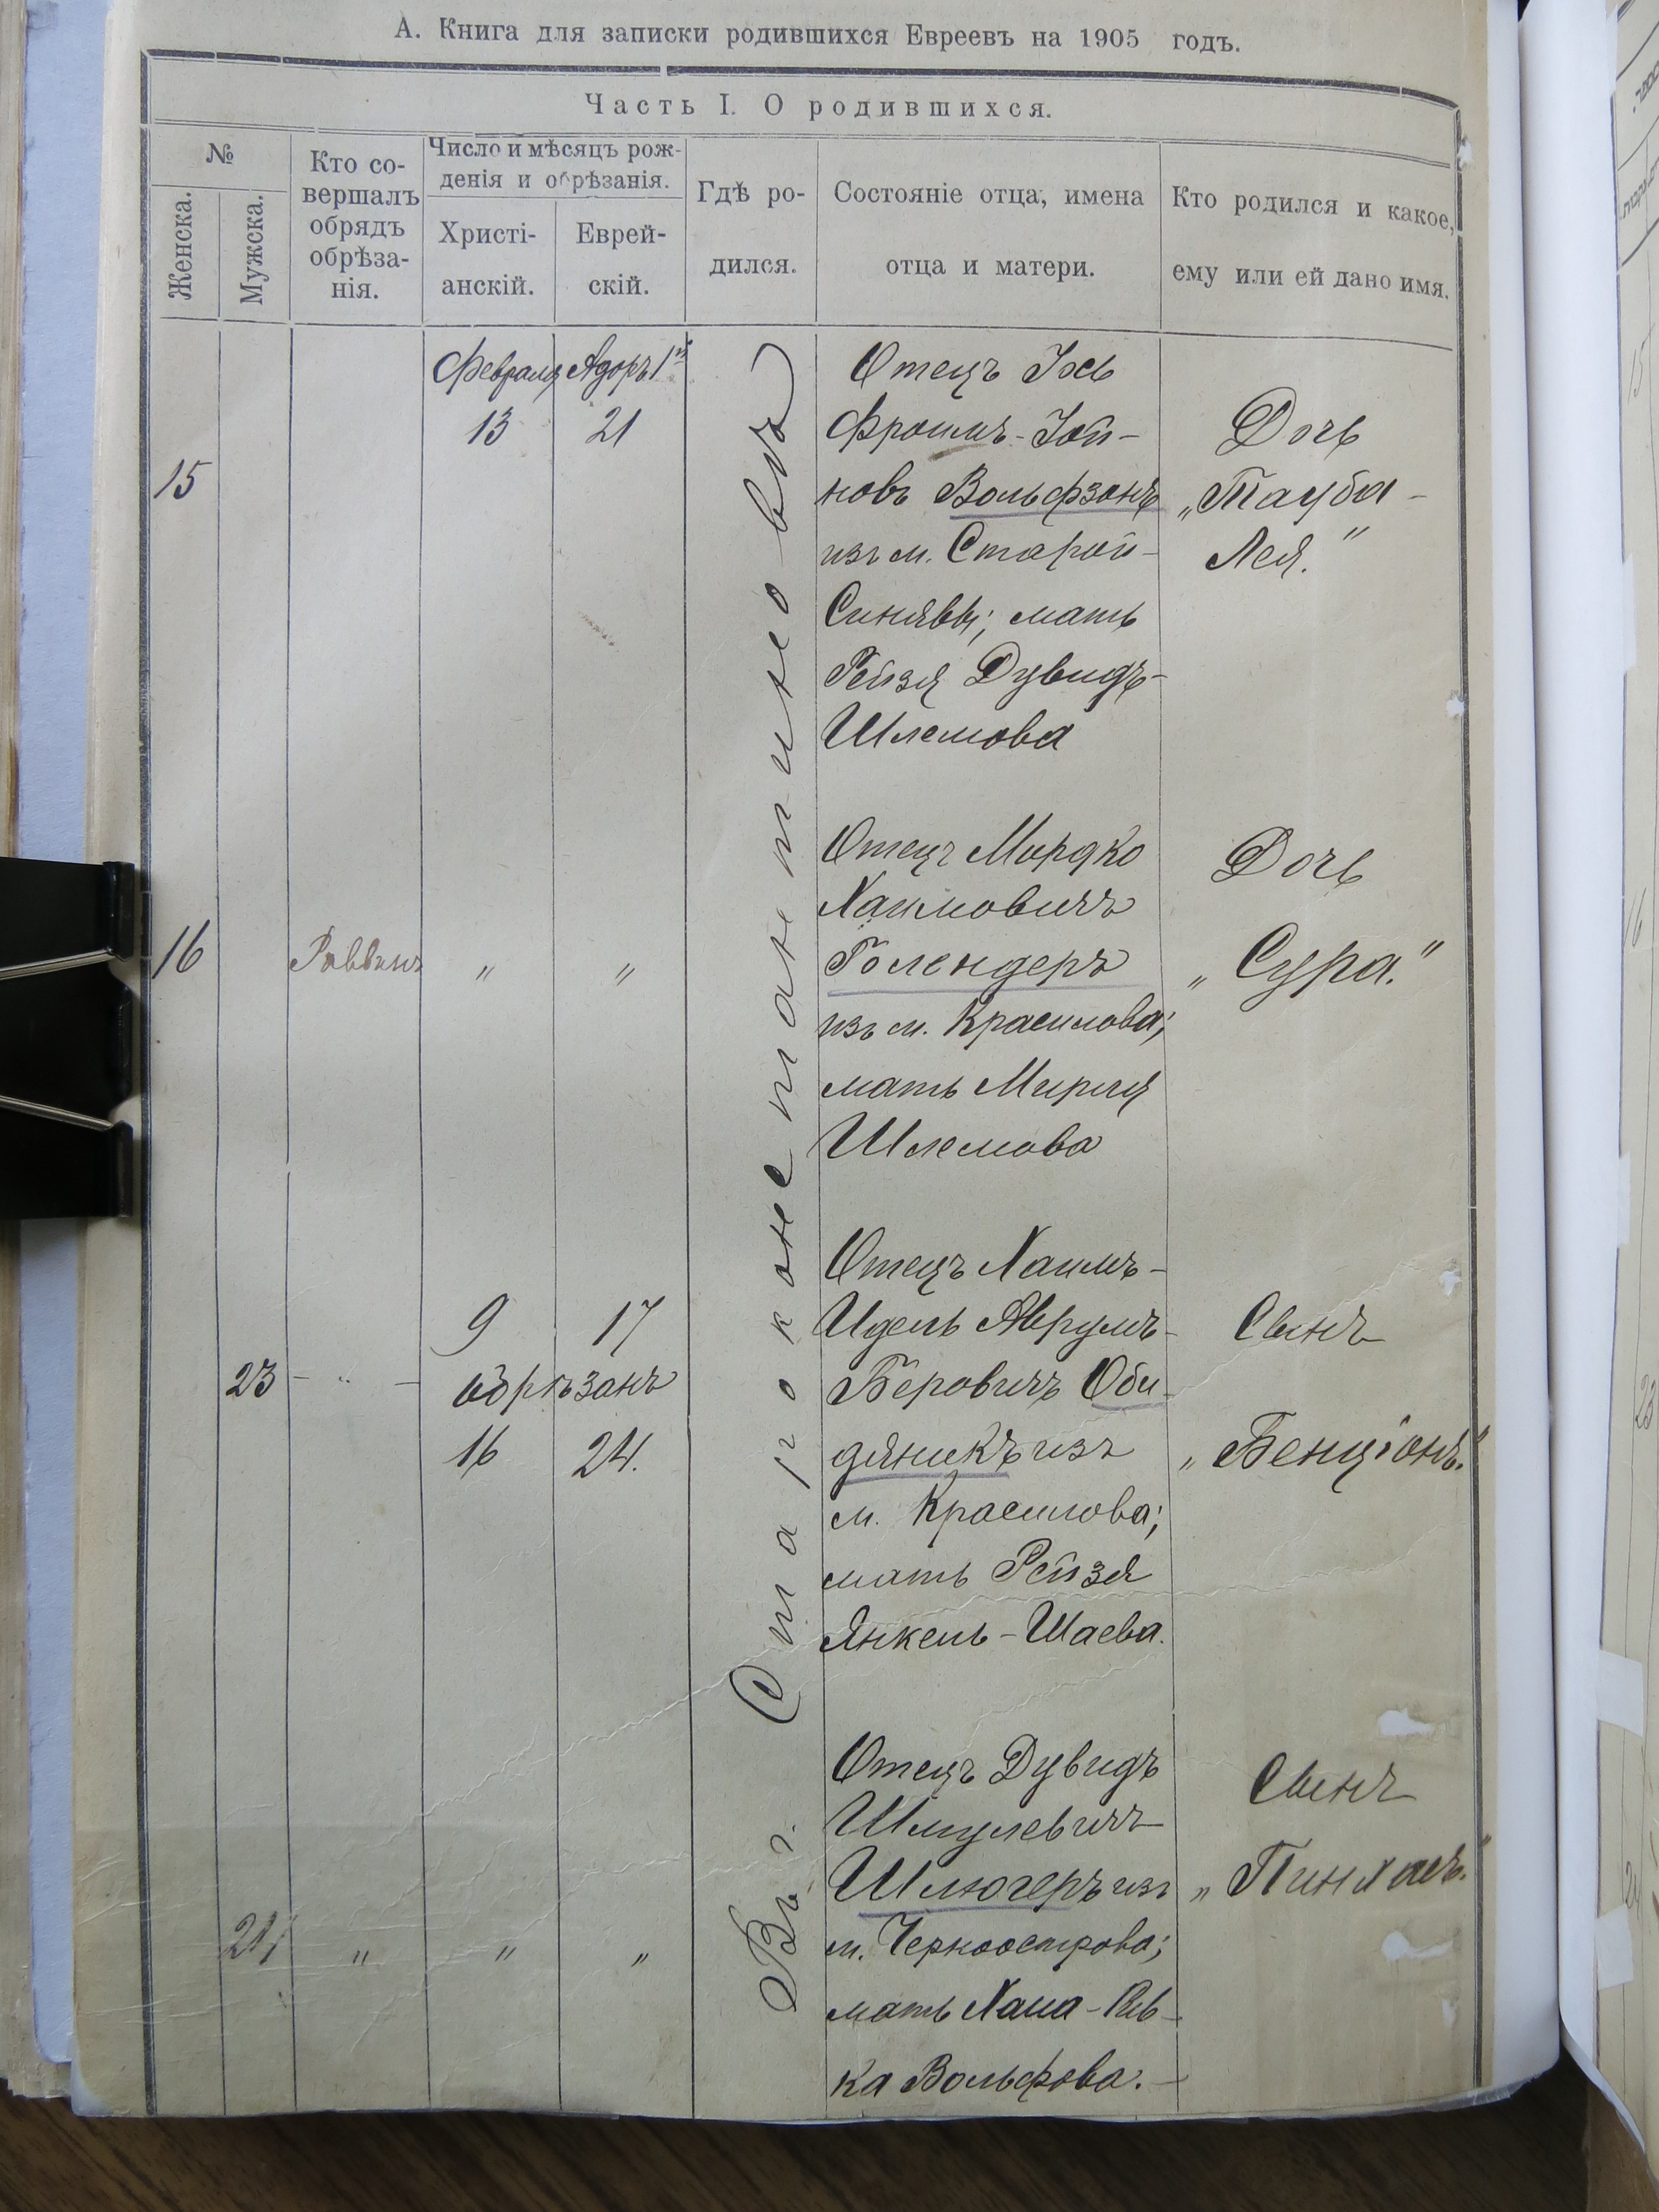 А. Книга для записки родившихся Евреевъ на 1905 годъ.
Часть I. О родившихся.
№
Женска.
Мужска.
Кто со-
вершалъ
обрядъ
обрѣза-
нія.
Число и мѣсяцъ рож-
денія и обрѣзанія.
Христі-
анскій.
Еврей-
скій.
Гдѣ ро-
дился.
Состояніе отца, имена
отца и матери.
Кто родился и какое,
ему или ей дано имя.
Въ г. Староконстантиновѣ
Февраля Адоръ 1й
13 21
15
Отецъ Іось
Фроимъ-Іой-
новъ Вольфзонъ
изъ м. Старой-
Синявы; мать
Рейзя Дувидъ-
Шлемова
Дочь
„Тауба-
Лея."
16 Раввинъ " "
Отецъ Мордко
Хаимовичъ
Голендеръ
изъ м. Красилова;
мать Мирля
Шлемова
Дочь
„Сура."
23 - " -
9 17
обрѣзанъ
16 24.
Отецъ Хаимъ-
Идель Аврумъ-
Беровичъ Оби-
дникъ изъ
м. Красилова;
мать Рейзя
Янкель-Шаева.
Сынъ
„Бенціонъ."
24 " " "
Отецъ Дувидъ
Шмулевичъ
Шлюгеръ изъ
м. Черноострова;
мать Хана-Рив-
ка Вольфова.-
Сынъ
„Пинхасъ."